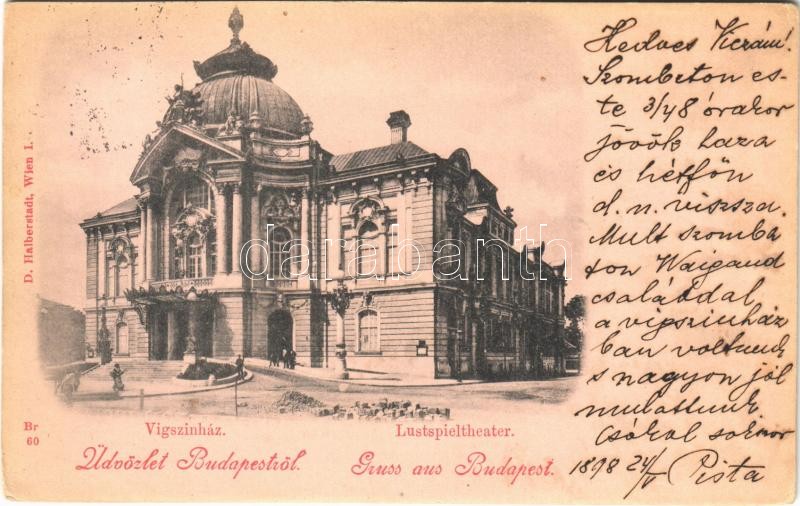 Kedves Viczám!
Szombaton es-
te 3/48 órakor
jövök haza
és hétfőn
d. n. vissza.
Mult szomba
ton Waigand
családdal
a vigszinház
ban voltunk
s nagyon jól
mulattunk
Csókol sokszor
1898 24/V Pista
D. Halberstadt, Wien I.
darabanth
Br
60
Vigszinház.
Lustspieltheater.
Üdvözlet Budapestről.
Gruss aus Budapest.